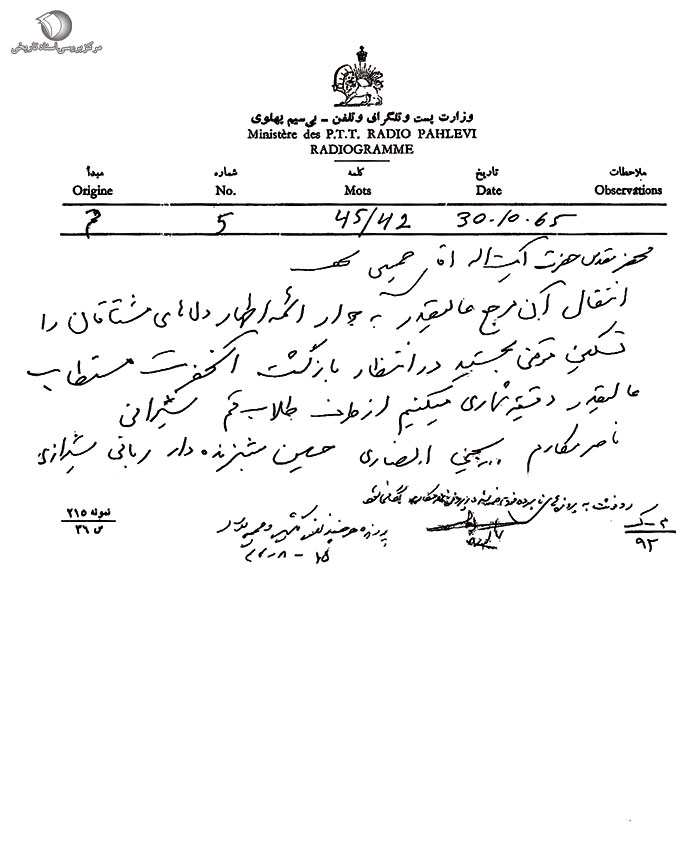 مرکز بررسی اسناد تاریخی
وزارت پست و تلگراف و تلفن - بی‌سیم پهلوی
Ministère des P.T.T. RADIO PAHLEVI
RADIOGRAMME
مبدأ شماره کلمه تاریخ ملاحظات
Origine No. Mots Date Observations
قم 5 45/42 30.10.65
محضر مقدس حضرت آیت اله آقای خمینی
انتقال آن مرجع عالیقدر به جوار ائمه اطهار دلهای مشتاقان را
تسکین موقتی بخشید در انتظار بازگشت آنحضرت مستطاب
عالیقدر دقیقه شماری میکنیم از طرف طلاب قم
ناصر مکارم یحیی انصاری حسین شب زنده دار ربانی شیرازی
رونوشت به پرونده های نامبرده فوق
نمونه ۲۱۵
س ۳۶
۹۲